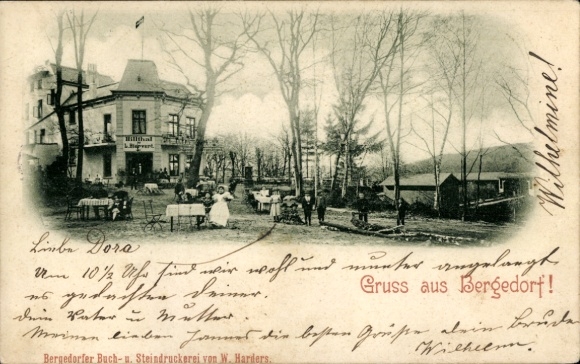 Billthal
Wilhelmine!
Liebe Dora
Um 10½ Uhr sind wir wohl und munter angelangt
Gruss aus Bergedorf!
es gedachten deiner
dein Vater u Mutter.
Meinen lieben die besten Grüße dein Bruder
Wilhelm
Bergedorfer Buch- u. Steindruckerei von W. Harders.